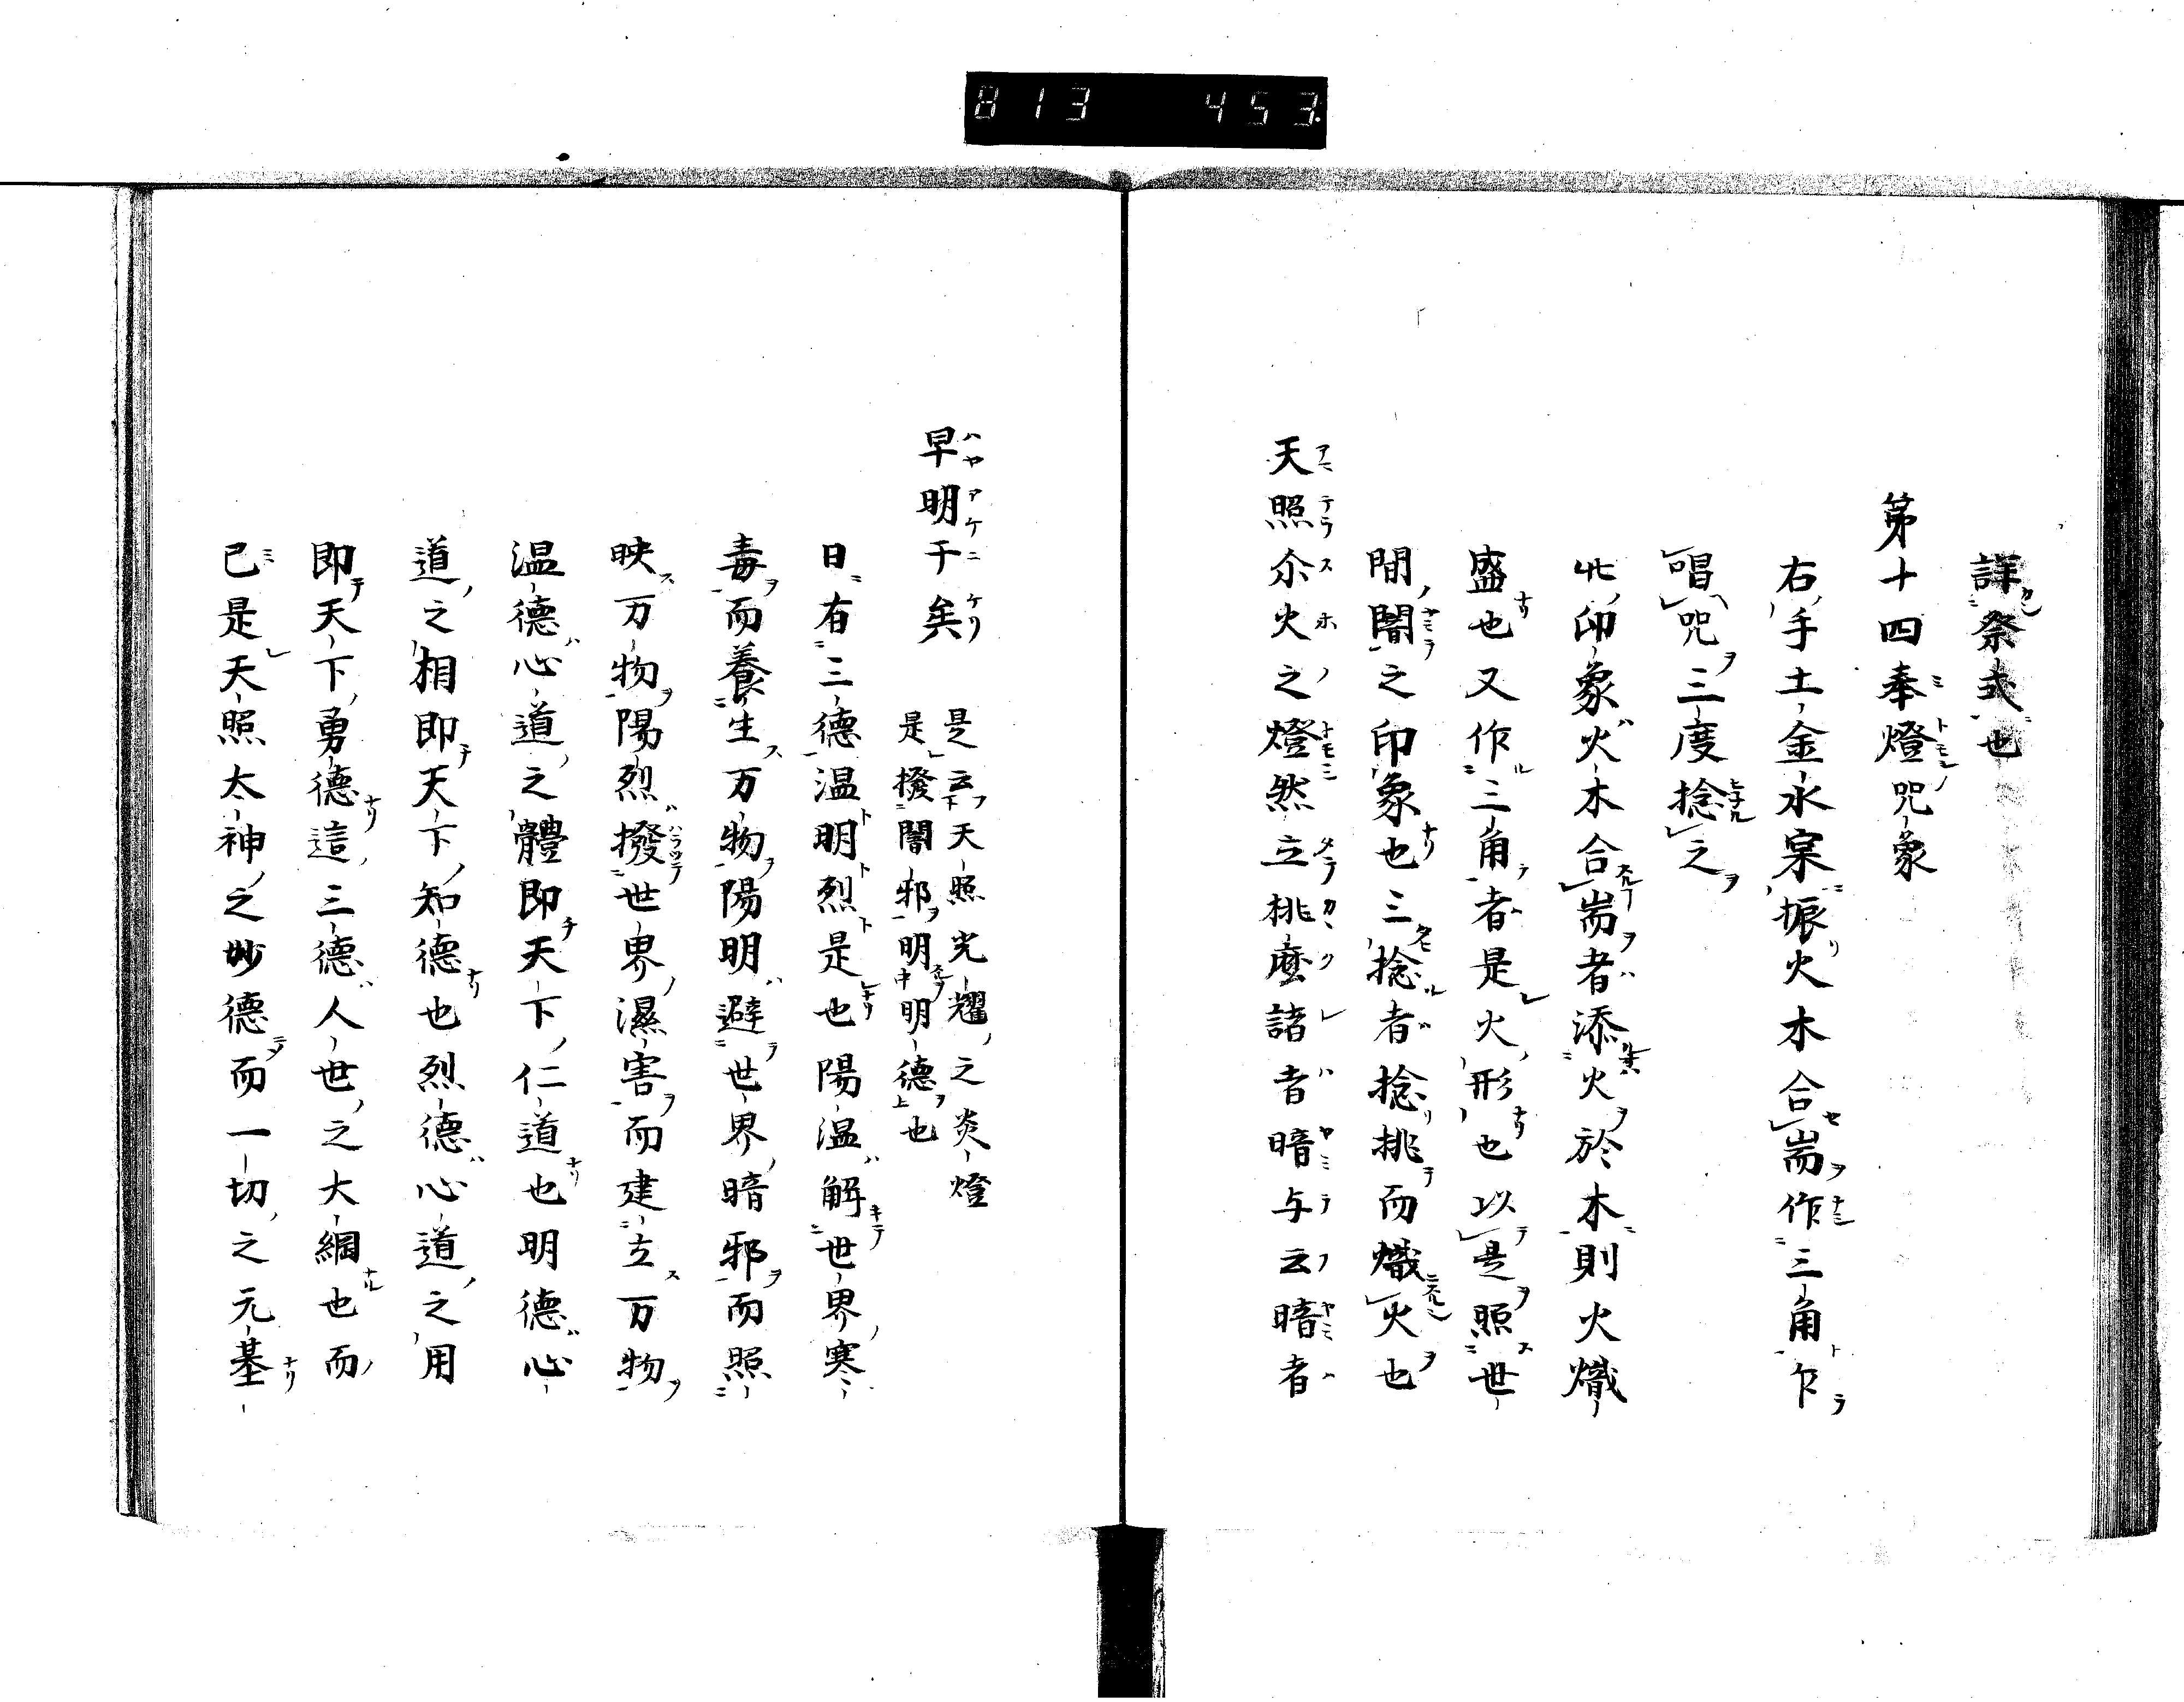 813 453
詳祭式也
第十四奉燈咒象
右手土金水宲振火木合耑作三角乍
唱咒三度捻之
此印象火木合耑者添火於木則火熾
盛也又作三角者是火形也以是照世
間闇之印象也三捻者捻挑而熾火也
天照尒火之燈然立桃麼諸者暗与云暗者
早明于矣
是云天照光耀之炎燈
是撥闇邪明明德也
日有三德温明烈是也陽温解世界寒
毒而養生万物陽明避世界暗邪而照
映万物陽烈撥世界濕害而建立万物
温德心道之體即天下仁道也明德心
道之相即天下知德也烈德心道之用
即天下勇德這三德人世之大綱也而
已是天照太神之妙德而一切之元基